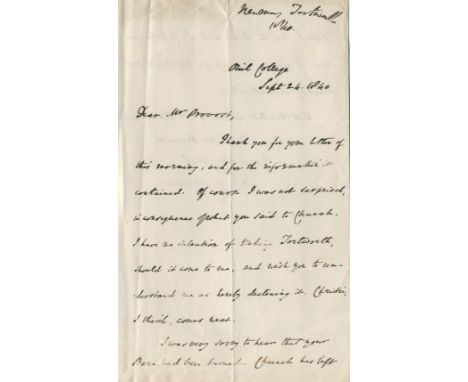 Newman, Tortworth
1840.
Oriel College
Sept 24. 1840
Dear Mr Provost,
Thank you for your letter of
this morning, and for the information it
contained. Of course I was not surprised,
in consequence of what you said to Church.
I have no intention of taking Tortworth,
should it come to me, and wish you to un-
derstand me as hereby declining it. Christie,
I think, comes next.
I was very sorry to hear that your
Barn had been burned. Church has left